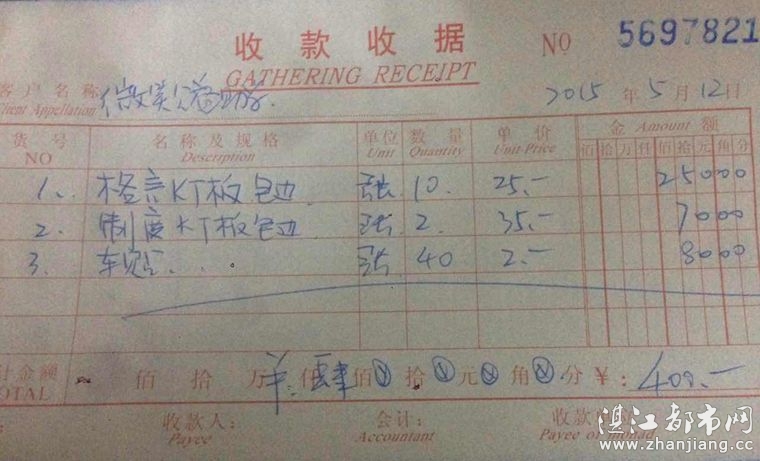 收款收据 NO 5697821
GATHERING RECEIPT
客户名称 微笑公益助学
Client Appellation 2015年5月12日
货号 名称及规格 单位 数量 单价 金 Amount 额
NO Description Unit Quantity Unit-Price 佰拾万仟佰拾元角分
1. 格言KT板包边 张 10. 25.- 25000
2. 制度KT板包边 张 2. 35.- 7000
3. 车贴 张 40 2.- 8000
计金额 佰 拾 万 仟 肆 佰 拾 元 角 分 ¥: 400.-
TOTAL
收款人: 会计: 收款
Payee Accountant Payee of
湛江都市网
www.zhanjiang.cc